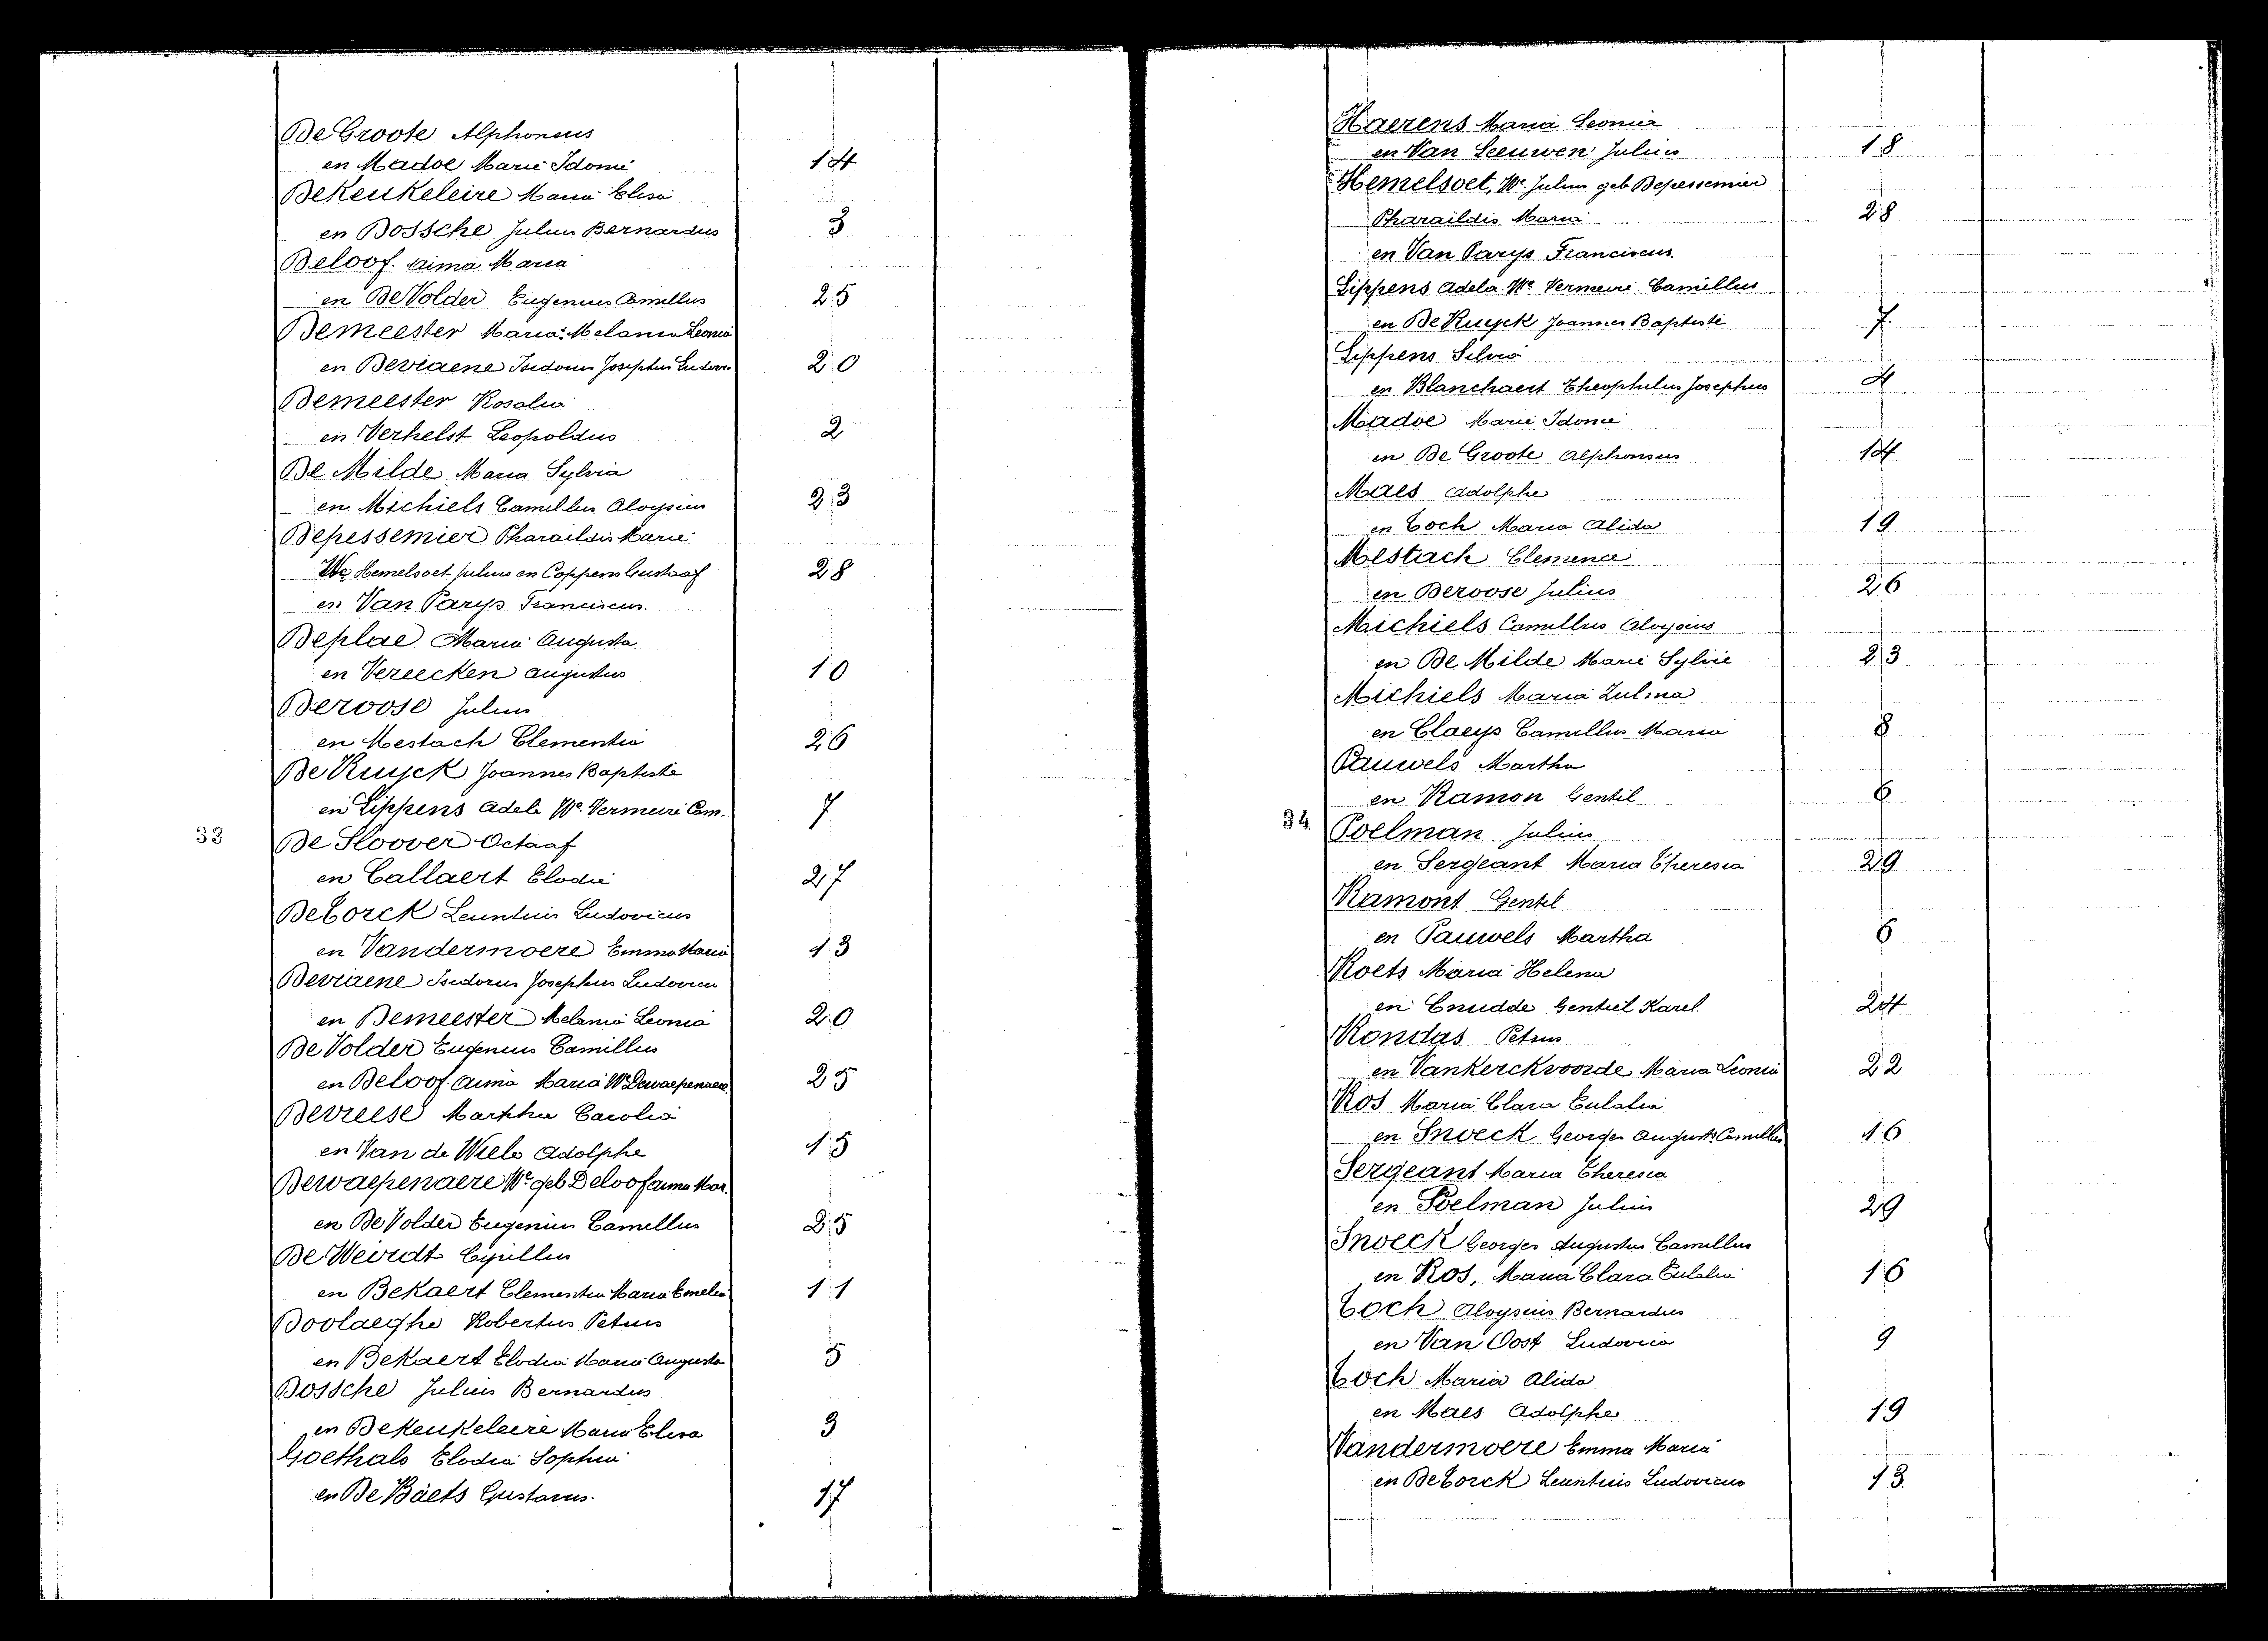 De Groote Alphonsus
en Madoe Marie Idonie 14
DeKeukeleire Maria Elisa
en Dossche Julius Bernardus 3
Deloof. Aima Maria
en De Volder Eugenius Camillus 25
Demeester Maria Melania Leonia
en Devriaene Isidorus Josephus Ludovic 20
Demeester Rosalia
en Verhelst Leopoldus 2
De Milde Maria Sylvia
en Michiels Camillus Aloysius 23
Depessemier Pharaildis Marie
We Hemelsoet Julius en Coppens Gustaaf 28
en Van Parijs Franciscus.
Deplae Maria Augusta
en Vereecken Augustus 10
Deroose Julius
en Mestach Clementia 26
De Ruyck Joannes Baptiste
en Lippens Adele We. Vermeire Cam. 7
33 De Sloover Octaaf
en Callaert Elodie 27
DeTorck Leuntius Ludovicus
en Vandermoere Emma Maria 13
Devriaene Isidorus Josephus Ludovicus
en Demeester Melania Leonia 20
De Volder Eugenius Camillus
en Deloof. Aima Maria We Dewaepenaere 25
Devreese Martha Carolia
en Van de Wiele Adolphe 15
Dewaepenaere We geb Deloof Aima Mar.
en De Volder Eugenius Camillus 25
De Weirdt Cyrillus
en Bekaert Clementia Maria Emelia 11
Doolaeghe Robertus Petrus
en Bekaert Elodia Maria Augusta 5
Dossche Julius Bernardus
en DeKeukeleire Maria Elisa 3
Goethals Elodia Sophia
en De Baets Gustavus. 17
Haerens Maria Leonia
en Van Leeuwen Julius 18
Hemelsoet, We. Julius geb Depessemier
Pharaildis Maria 28
en Van Parijs Franciscus.
Lippens Adela We Vermeire Camillus
en De Ruyck Joannes Baptiste 7
Lippens Silvia
en Blanchaert Theophilus Josephus 4
Madoe Marie Idonie
en De Groote Alphonsus 14
Maes Adolphe
en Toch Maria Alida 19
Mestach Clemence
en Deroose Julius 26
Michiels Camillus Aloysius
en De Milde Marie Sylvie 23
Michiels Maria Zulma
en Claeys Camillus Maria 8
Pauwels Martha
en Ramon Gentil 6
34 Poelman Julius
en Sergeant Maria Theresia 29
Ramont Gentil
en Pauwels Martha 6
Roets Maria Helena
en Cnudde Gentiel Karel 24
Rondas Petrus
en Vankerckvoorde Maria Leonia 22
Ros Maria Clara Eulalia
en Snoeck Georges August. Camillus 16
Sergeant Maria Theresia
en Poelman Julius 29
Snoeck Georges Augustus Camillus
en Ros, Maria Clara Eulalia 16
Toch Aloysius Bernardus
en Van Oost Ludovica 9
Toch Maria Alida
en Maes Adolphe 19
Vandermoere Emma Maria
en DeTorck Leuntius Ludovicus 13